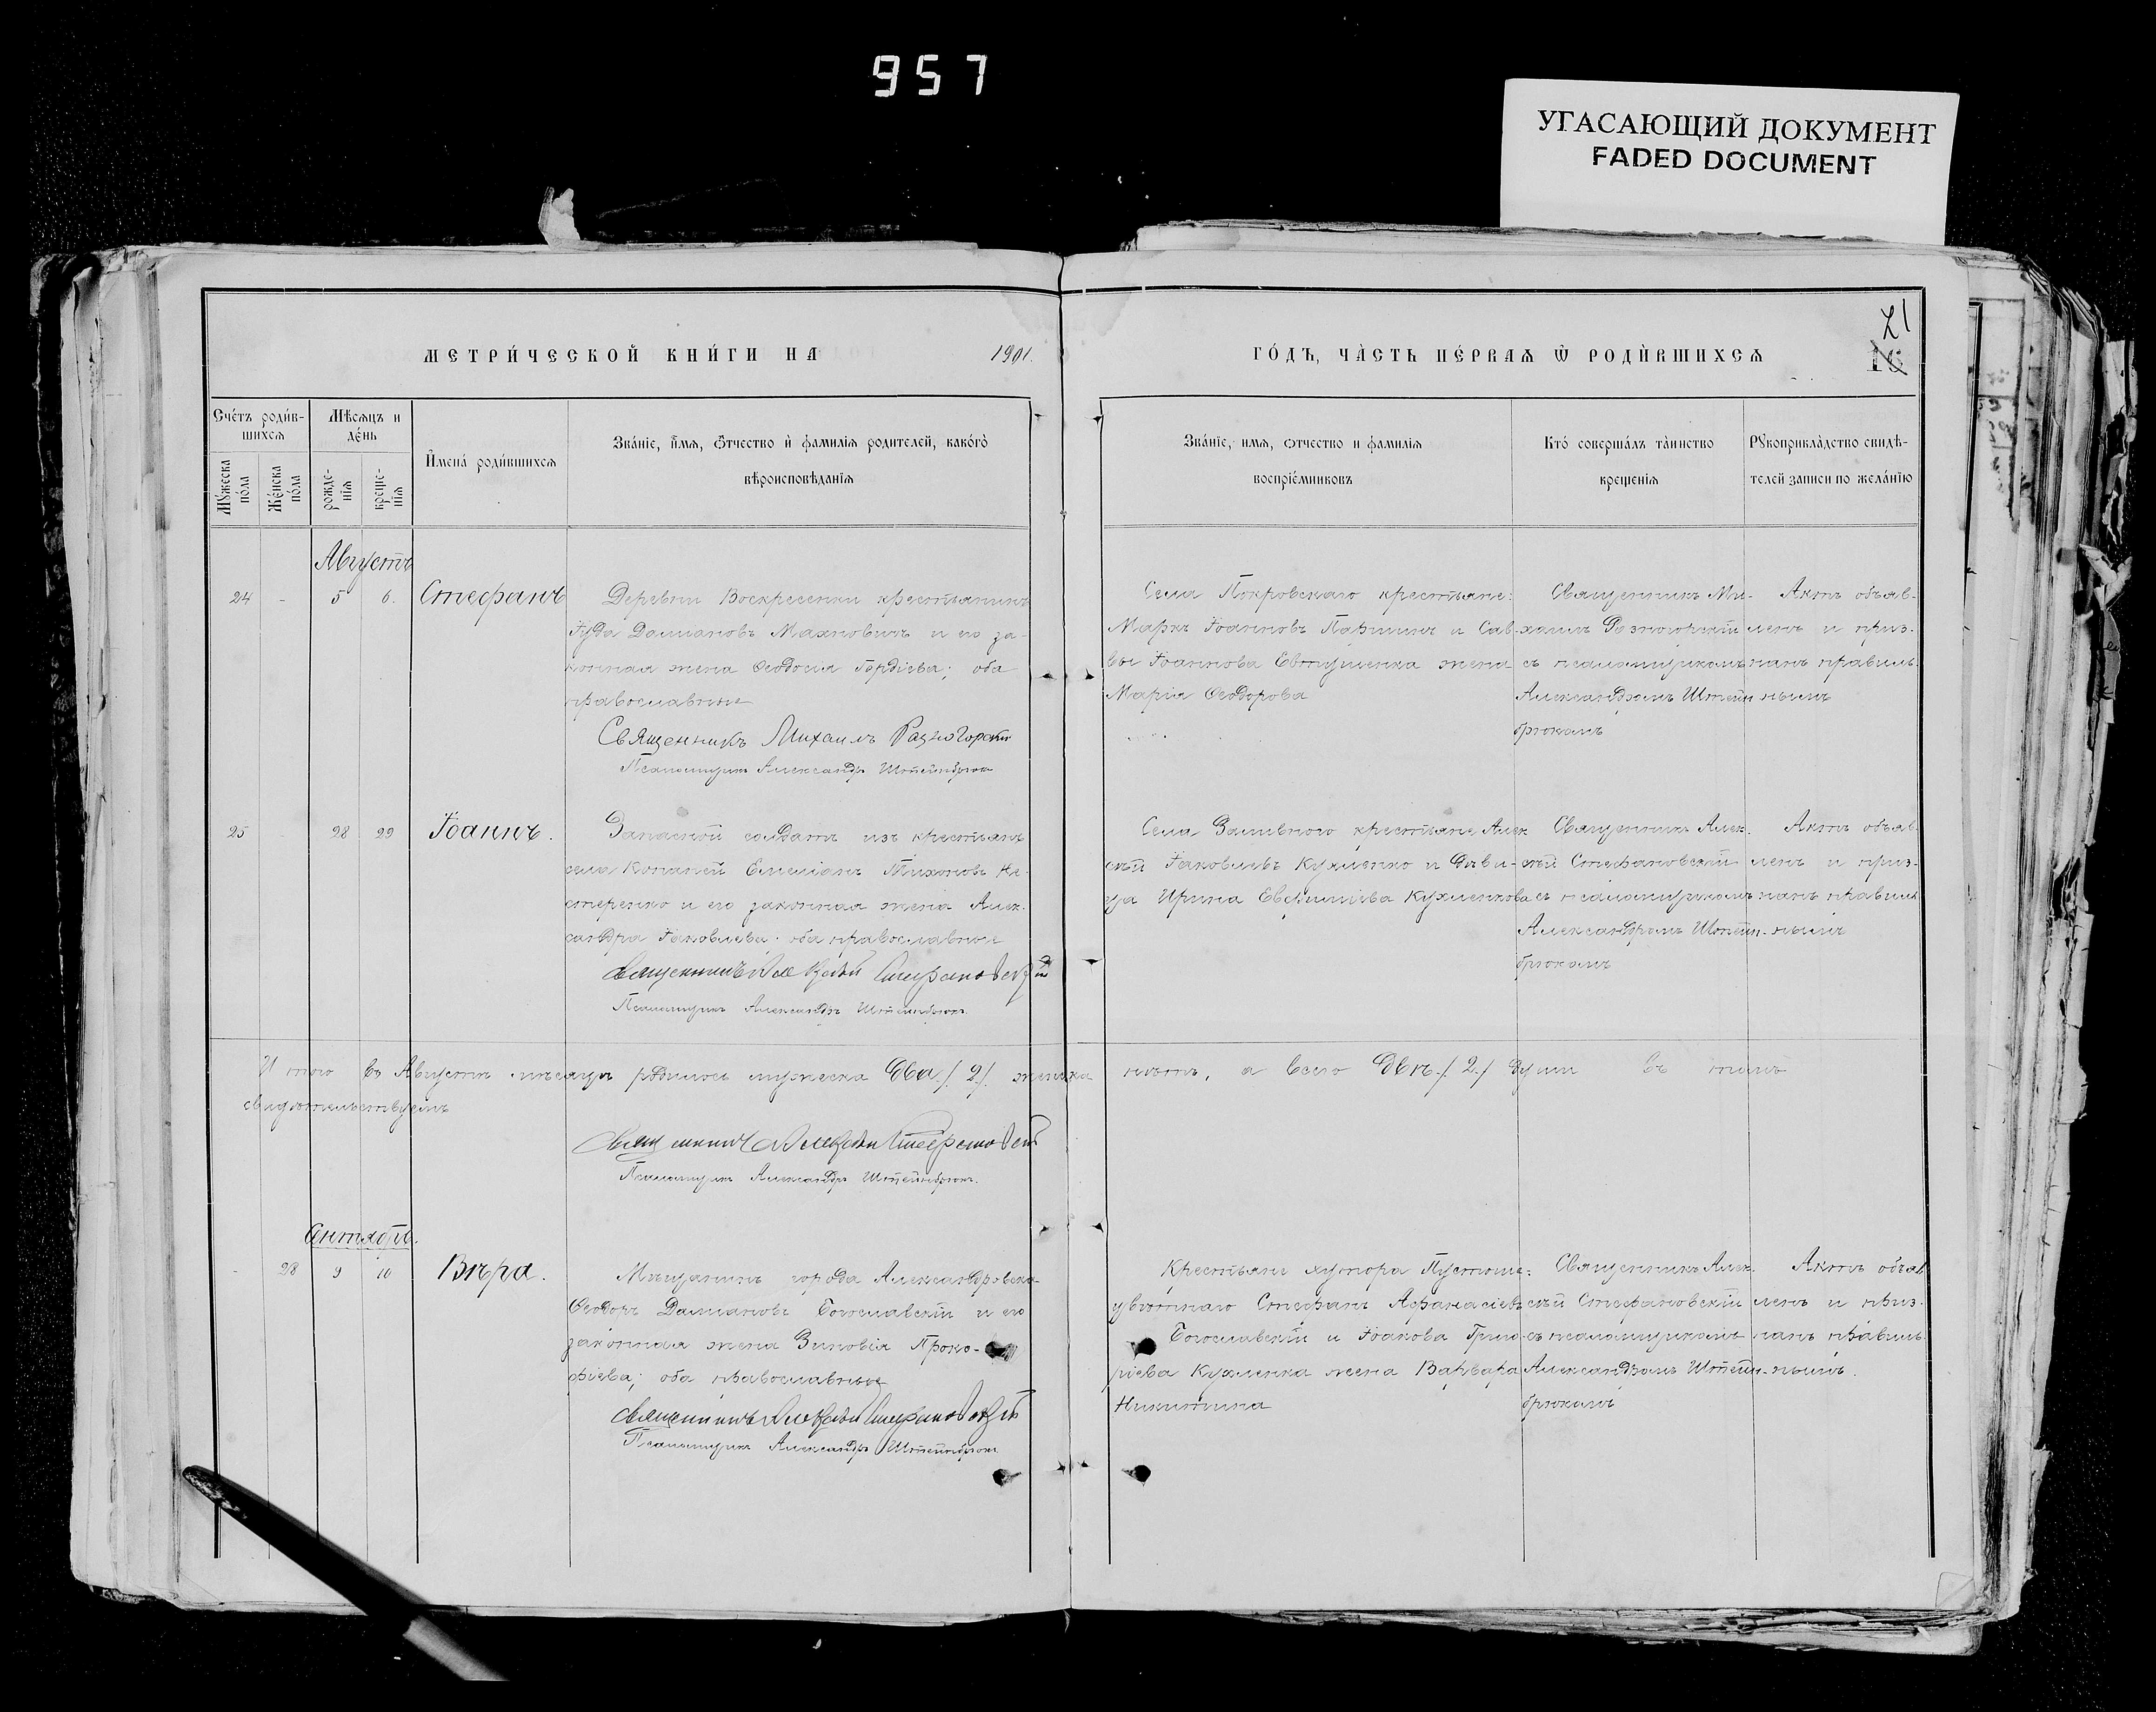 957
УГАСАЮЩИЙ ДОКУМЕНТ
FADED DOCUMENT
21
16
МЕТРИ́ЧЕСКОЙ КНИ́ГИ НА 1901. ГО́ДЪ, ЧА̀СТЬ ПЕ́РВАѦ Ѿ РОДИ́ВШИХСѦ
Сче́тъ роди́в-
шихсѧ
Мꙋ́жеска по́ла
Же́нска по́ла
Мѣ́сѧцъ и
де́нь
рожде-
нїѧ
креще-
нїѧ
Имена́ роди́вшихсѧ
Зва́нїе, и́мѧ, ѻ́тчество и̓ фамилїѧ родителей, како́гѡ
вѣроисповѣданїѧ
Зва́нїе, имѧ, ѻтчество и фамилїѧ
воспрїе́мниковъ
Кто́ соверша́лъ та́инство
крещенїѧ
Рꙋкоприкла́дство свидѣ́-
телей записи по жела́нїю
Августъ
24 - 5 6. Стефанъ
Деревни Воскресенки крестьянинъ
Іуда Даміановъ Махновичъ и его за-
конная жена Ѳеодосія Гордіева; оба
православные
Священникъ Михаилъ Разногорскій
Псаломщикъ Александръ Штейнбрюкъ
Села Покровскаго крестьяне:
Маркъ Іоанновъ Паршинъ и Сав-
вы Іоаннова Евтушенка жена
Марія Ѳеодорова
Священникъ Ми-
хаилъ Разногорскій
съ псаломщикомъ
Александромъ Штейн
брюкомъ
Актъ объяв-
ленъ и приз-
нанъ правиль-
нымъ
25 28 29 Іоаннъ.
Запасной солдатъ изъ крестьянъ
села Копаней Емеліанъ Тихоновъ Не-
стеренко и его законная жена Алек-
сандра Іаковлева; оба православные
Священникъ Алексѣй Стефановскій
Псаломщикъ Александръ Штейнбрюкъ.
Села Заливного крестьяне Алек
сѣй Іаковлевъ Кухленко и дѣви-
ца Ирина Евфиміева Кухленкова
Священникъ Алек-
сѣй Стефановскій
съ псаломщикомъ
Александромъ Штейн-
брюкомъ
Актъ объяв-
ленъ и приз-
нанъ правиль
нымъ
Итого въ Августѣ мѣсяцѣ родилось мужеска два /2/. женска нѣтъ, а всего двѣ /2/ души въ томъ
свидѣтельствуемъ
Священникъ Алексѣй Стефановскій
Псаломщикъ Александръ Штейнбрюкъ.
Сентябрь.
- 28 9 10 Вѣра.
Мѣщанинъ города Александровска
Ѳеодоръ Даміановъ Богославскій и его
законная жена Зиновія Проко-
фіева; оба православные
Священникъ Алексѣй Стефановскій
Псаломщикъ Александръ Штейнбрюкъ
Крестьяне хутора Пустоше-
цвѣтнаго Стефанъ Аѳанасіевъ
Богославскій и Іакова Григо-
ріева Кухленка жена Варвара
Никитина
Священникъ Алек-
сѣй Стефановскій
съ псаломщикомъ
Александромъ Штейн-
брюкомъ
Актъ объяв
ленъ и приз-
нанъ правиль-
нымъ.